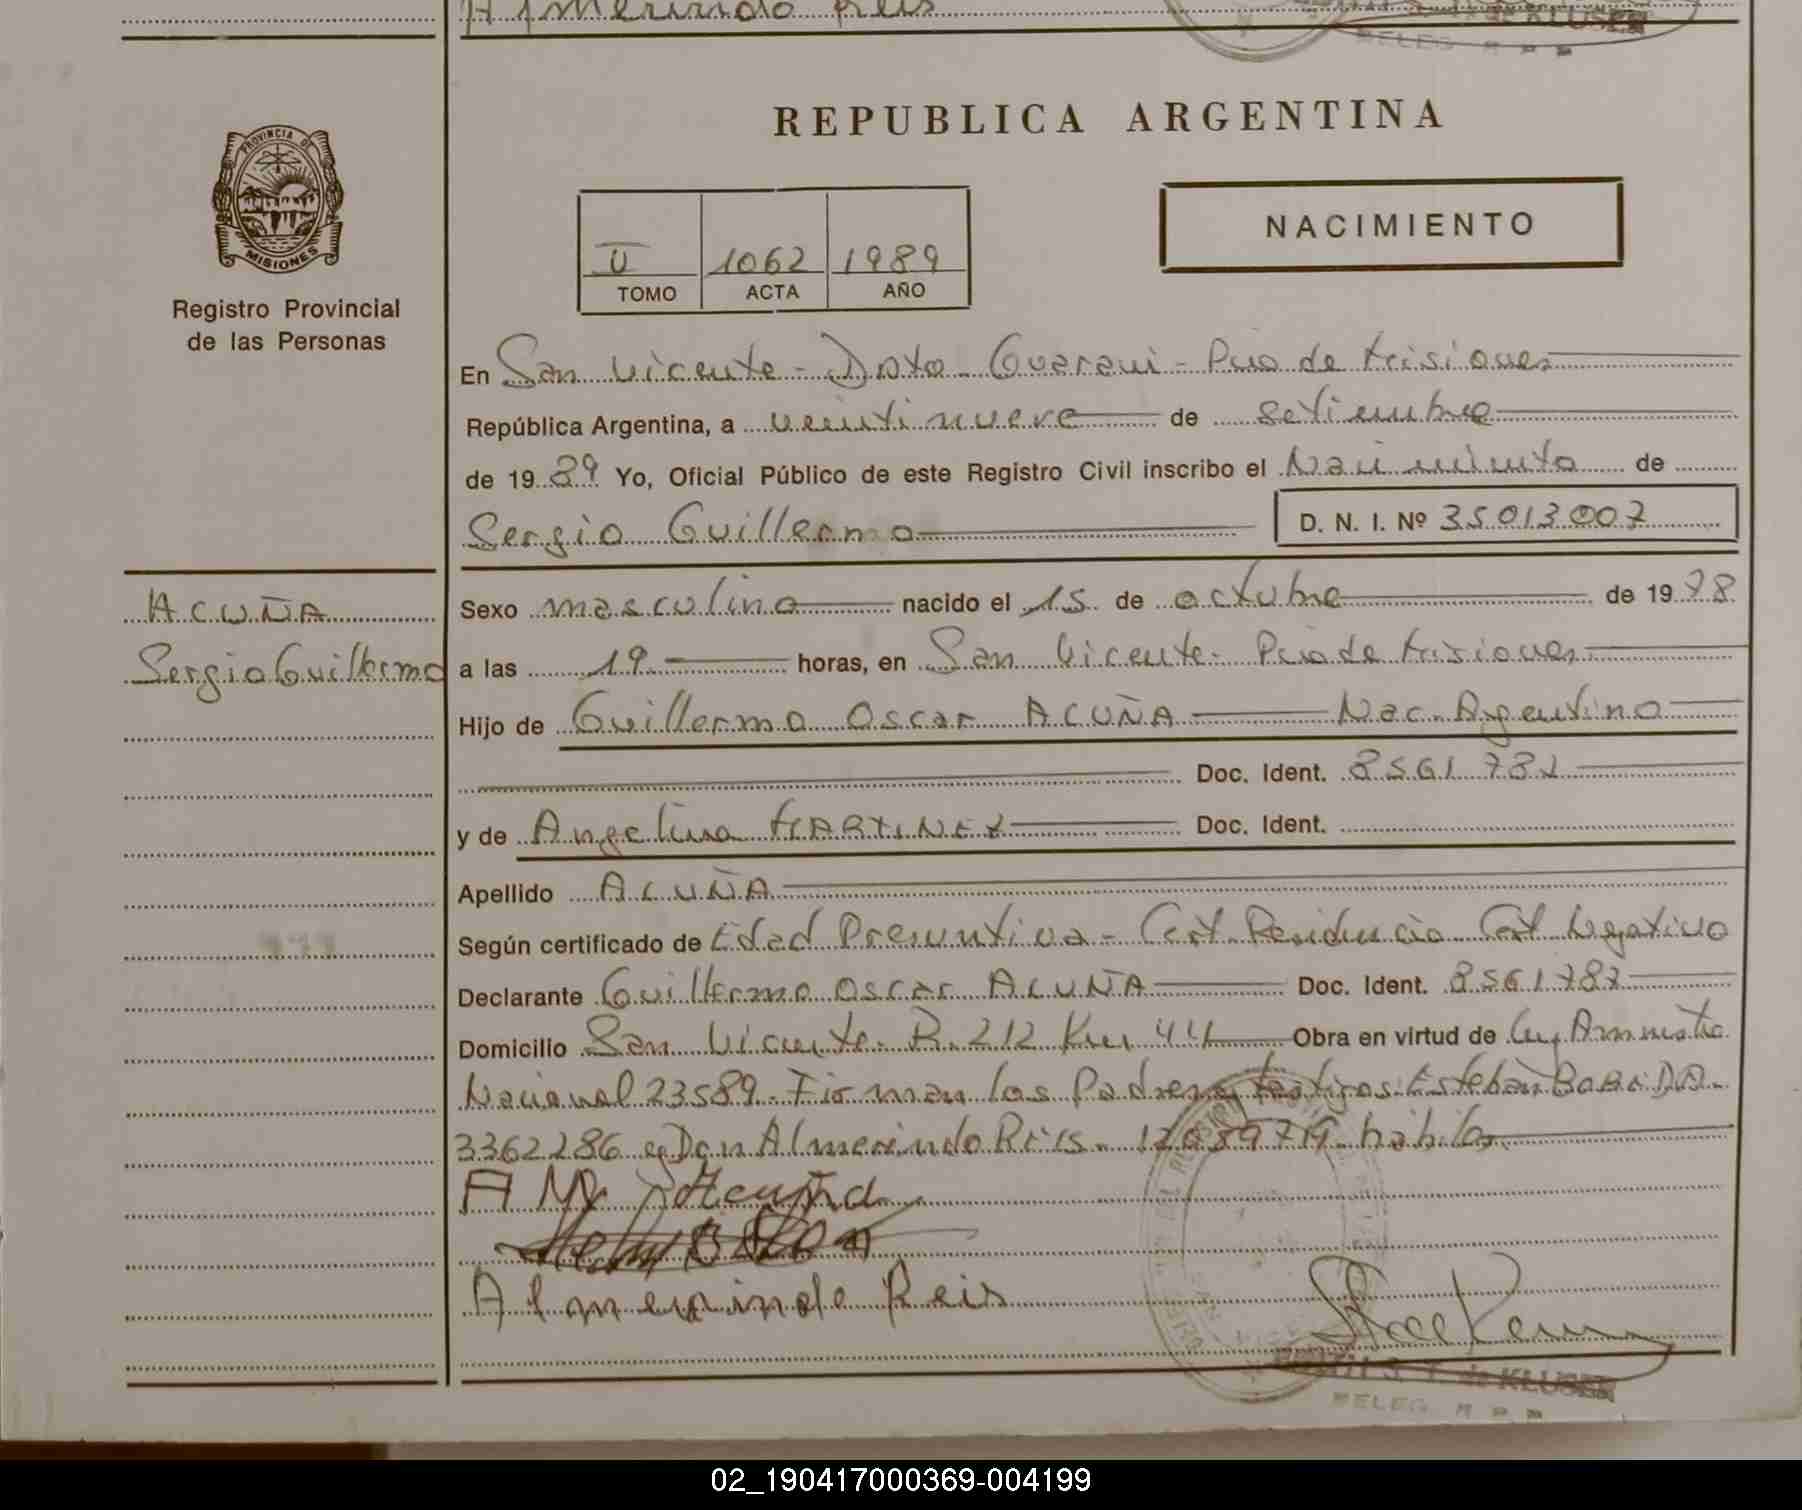 Almerindo Reis
de KLUSER
DELEG. R. P. P.
PROVINCIA DE
MISIONES
Registro Provincial
de las Personas
REPUBLICA ARGENTINA
NACIMIENTO
II 1062 1989
TOMO ACTA AÑO
En San Vicente - Dpto Guarani - Pcia de Misiones
República Argentina, a veintinueve de setiembre
de 19 89 Yo, Oficial Público de este Registro Civil inscribo el Nacimiento de
Sergio Guillermo D. N. I. Nº 35013007
ACUÑA
Sergio Guillermo
Sexo masculino nacido el 15 de octubre de 19 78
a las 19 horas, en San Vicente - Pcia de Misiones
Hijo de Guillermo Oscar ACUÑA Nac. Argentino
Doc. Ident. 8561787
y de Angelina MARTINEZ Doc. Ident.
Apellido ACUÑA
Según certificado de Edad Presuntiva - Cert. Residencia Cert Negativo
Declarante Guillermo Oscar ACUÑA Doc. Ident. 8561787
Domicilio San Vicente - R. 212 Km 44 Obra en virtud de Ley Amnistia
Nacional 23589. Firman los Padres y testigos: Esteban D.N.
3362286 y Don Almerindo Reis - 12089719 habiles
Acuña
Almerindo Reis
de KLUSER
DELEG. R. P. P.
02_190417000369-004199